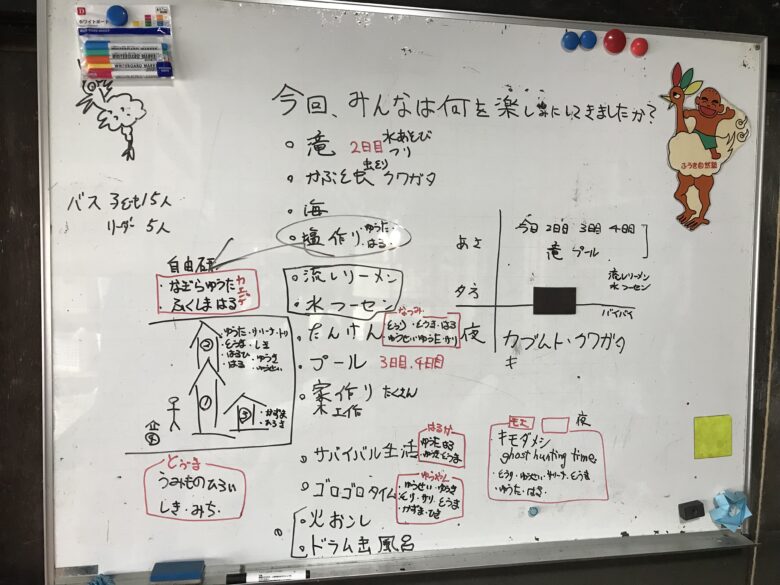 ホワイトボード
WHITEBOARD MARKER
今回、みんなは何を楽しみにしてきましたか?
ふうき自然塾
・滝 2日目 水あそび
つり
虫とり
・かぶと虫 クワガタ
・海
・塩作り ゆうた
はる
バス 子ども15人
リーダー 5人
自由研
・なぎらゆうた
ふくしまはる
カエデ
・流しソーメン
・水フーセン
あさ
今日 2日目 3日目 4日目
滝 プール
流しソーメン
水フーセン
夕方
バイバイ
夜
カブムト・クワガタ
キ
なつみ
・たんけん
とうり・とうま・はる
ゆうせい・ゆうた・かり
・プール 3日目、4日目
・家作り たくさん
木工作
② ゆうた・サリーナ・トリ
とうま・しき
はるひ・ゆうき
はる・ゆうせい
①
③ かずま
企画
とうま
うみものひろい
しき・みち
・サバイバル生活
はるか
ゆうた はる
ゆうき とうま
・ゴロゴロタイム
ゆうせい・ゆうき
とり・サリ・とうま
かずま・ひき
・火おこし
・ドラム缶風呂
モエ
夜
キモダメシ
ghost hunting time
とうり・ゆうせい・サリーナ・とうま
・ゆうた・はる